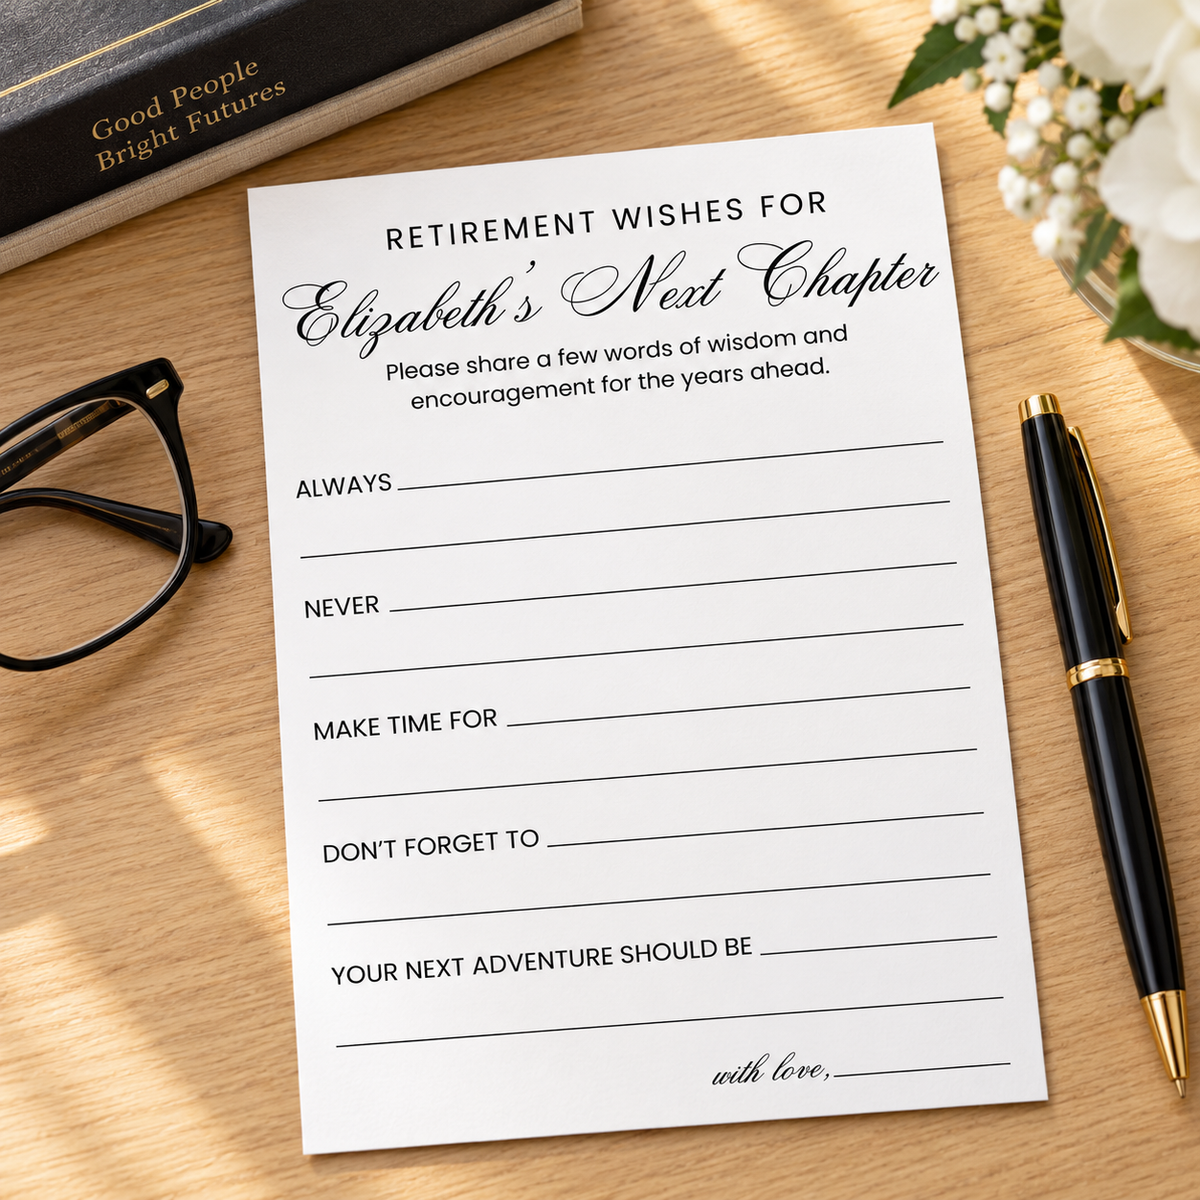 Good People
Bright Futures
RETIREMENT WISHES FOR
Elizabeth's Next Chapter
Please share a few words of wisdom and
encouragement for the years ahead.
ALWAYS
NEVER
MAKE TIME FOR
DON'T FORGET TO
YOUR NEXT ADVENTURE SHOULD BE
with love,